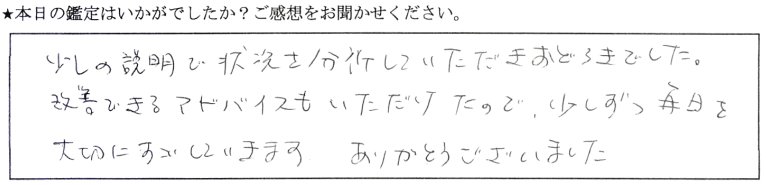 ★本日の鑑定はいかがでしたか？ご感想をお聞かせください。
少しの説明で状況を分析していただきおどろきでした。
改善できるアドバイスもいただけたので、少しずつ毎日を
大切にすごしていきます ありがとうございました